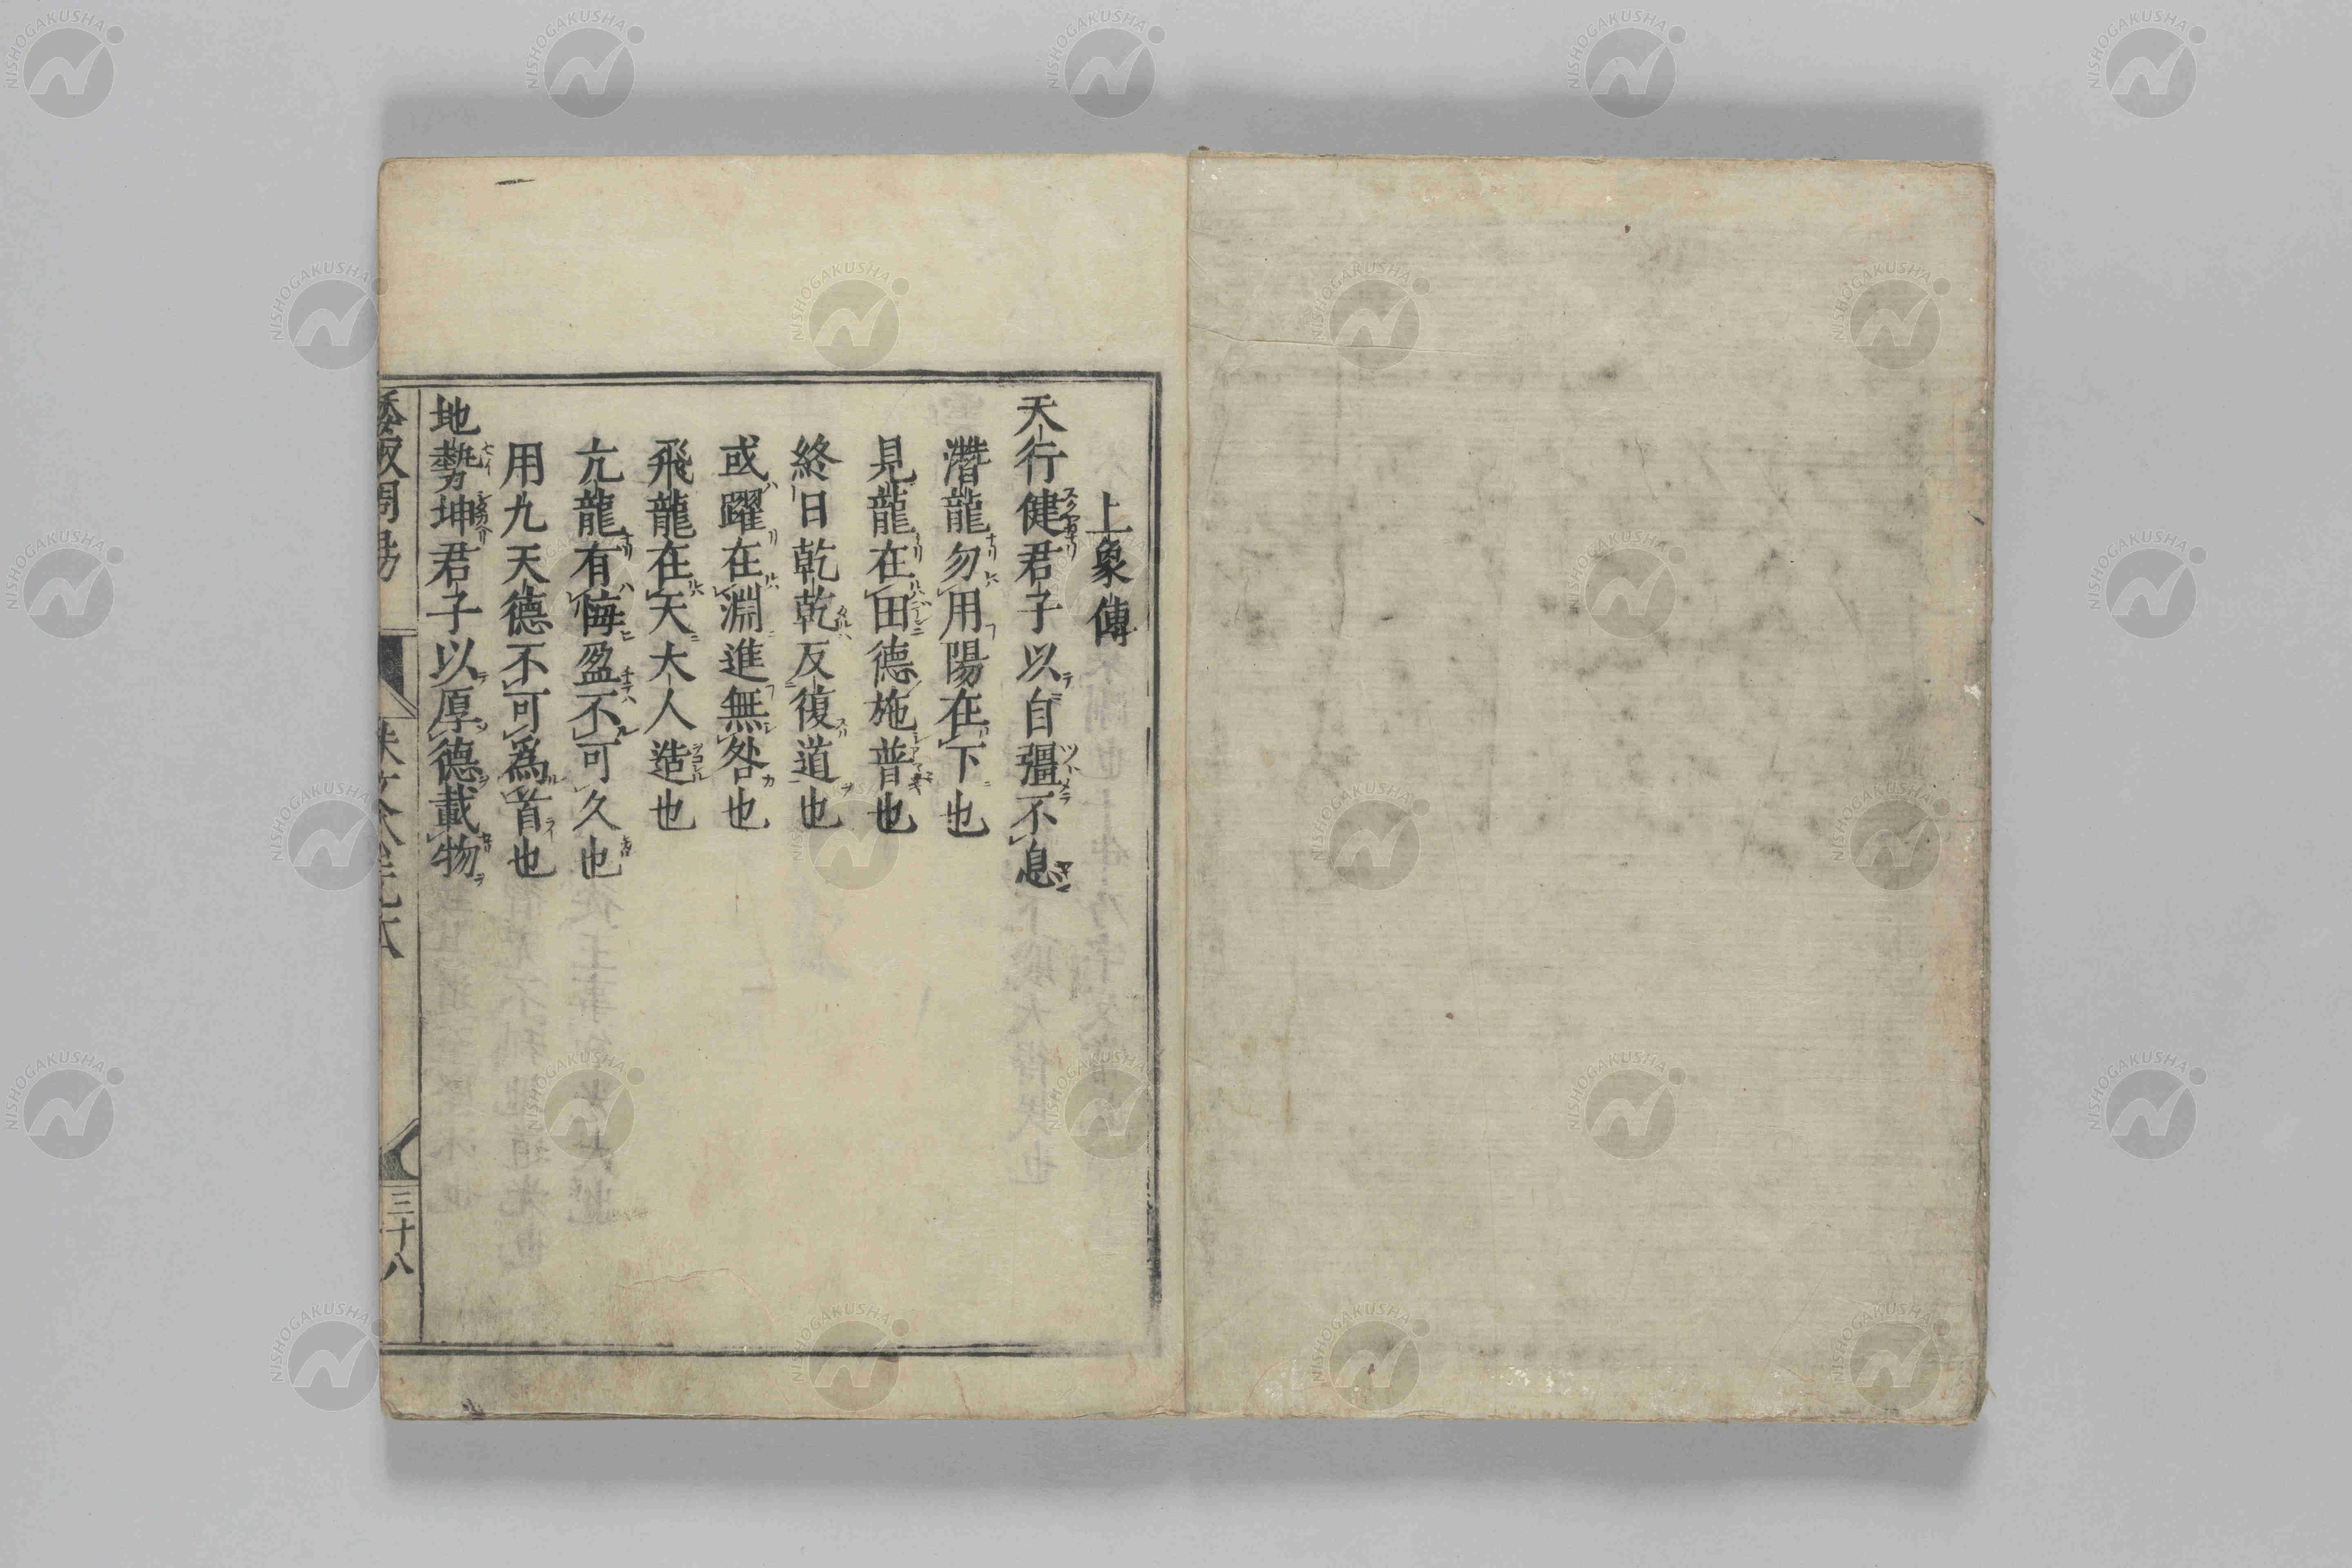 上象傳
天行健君子以自彊不息
潛龍勿用陽在下也
見龍在田德施普也
終日乾乾反復道也
或躍在淵進無咎也
飛龍在天大人造也
亢龍有悔盈不可久也
用九天德不可爲首也
地勢坤君子以厚德載物
三十八
NISHOGAKUSHA